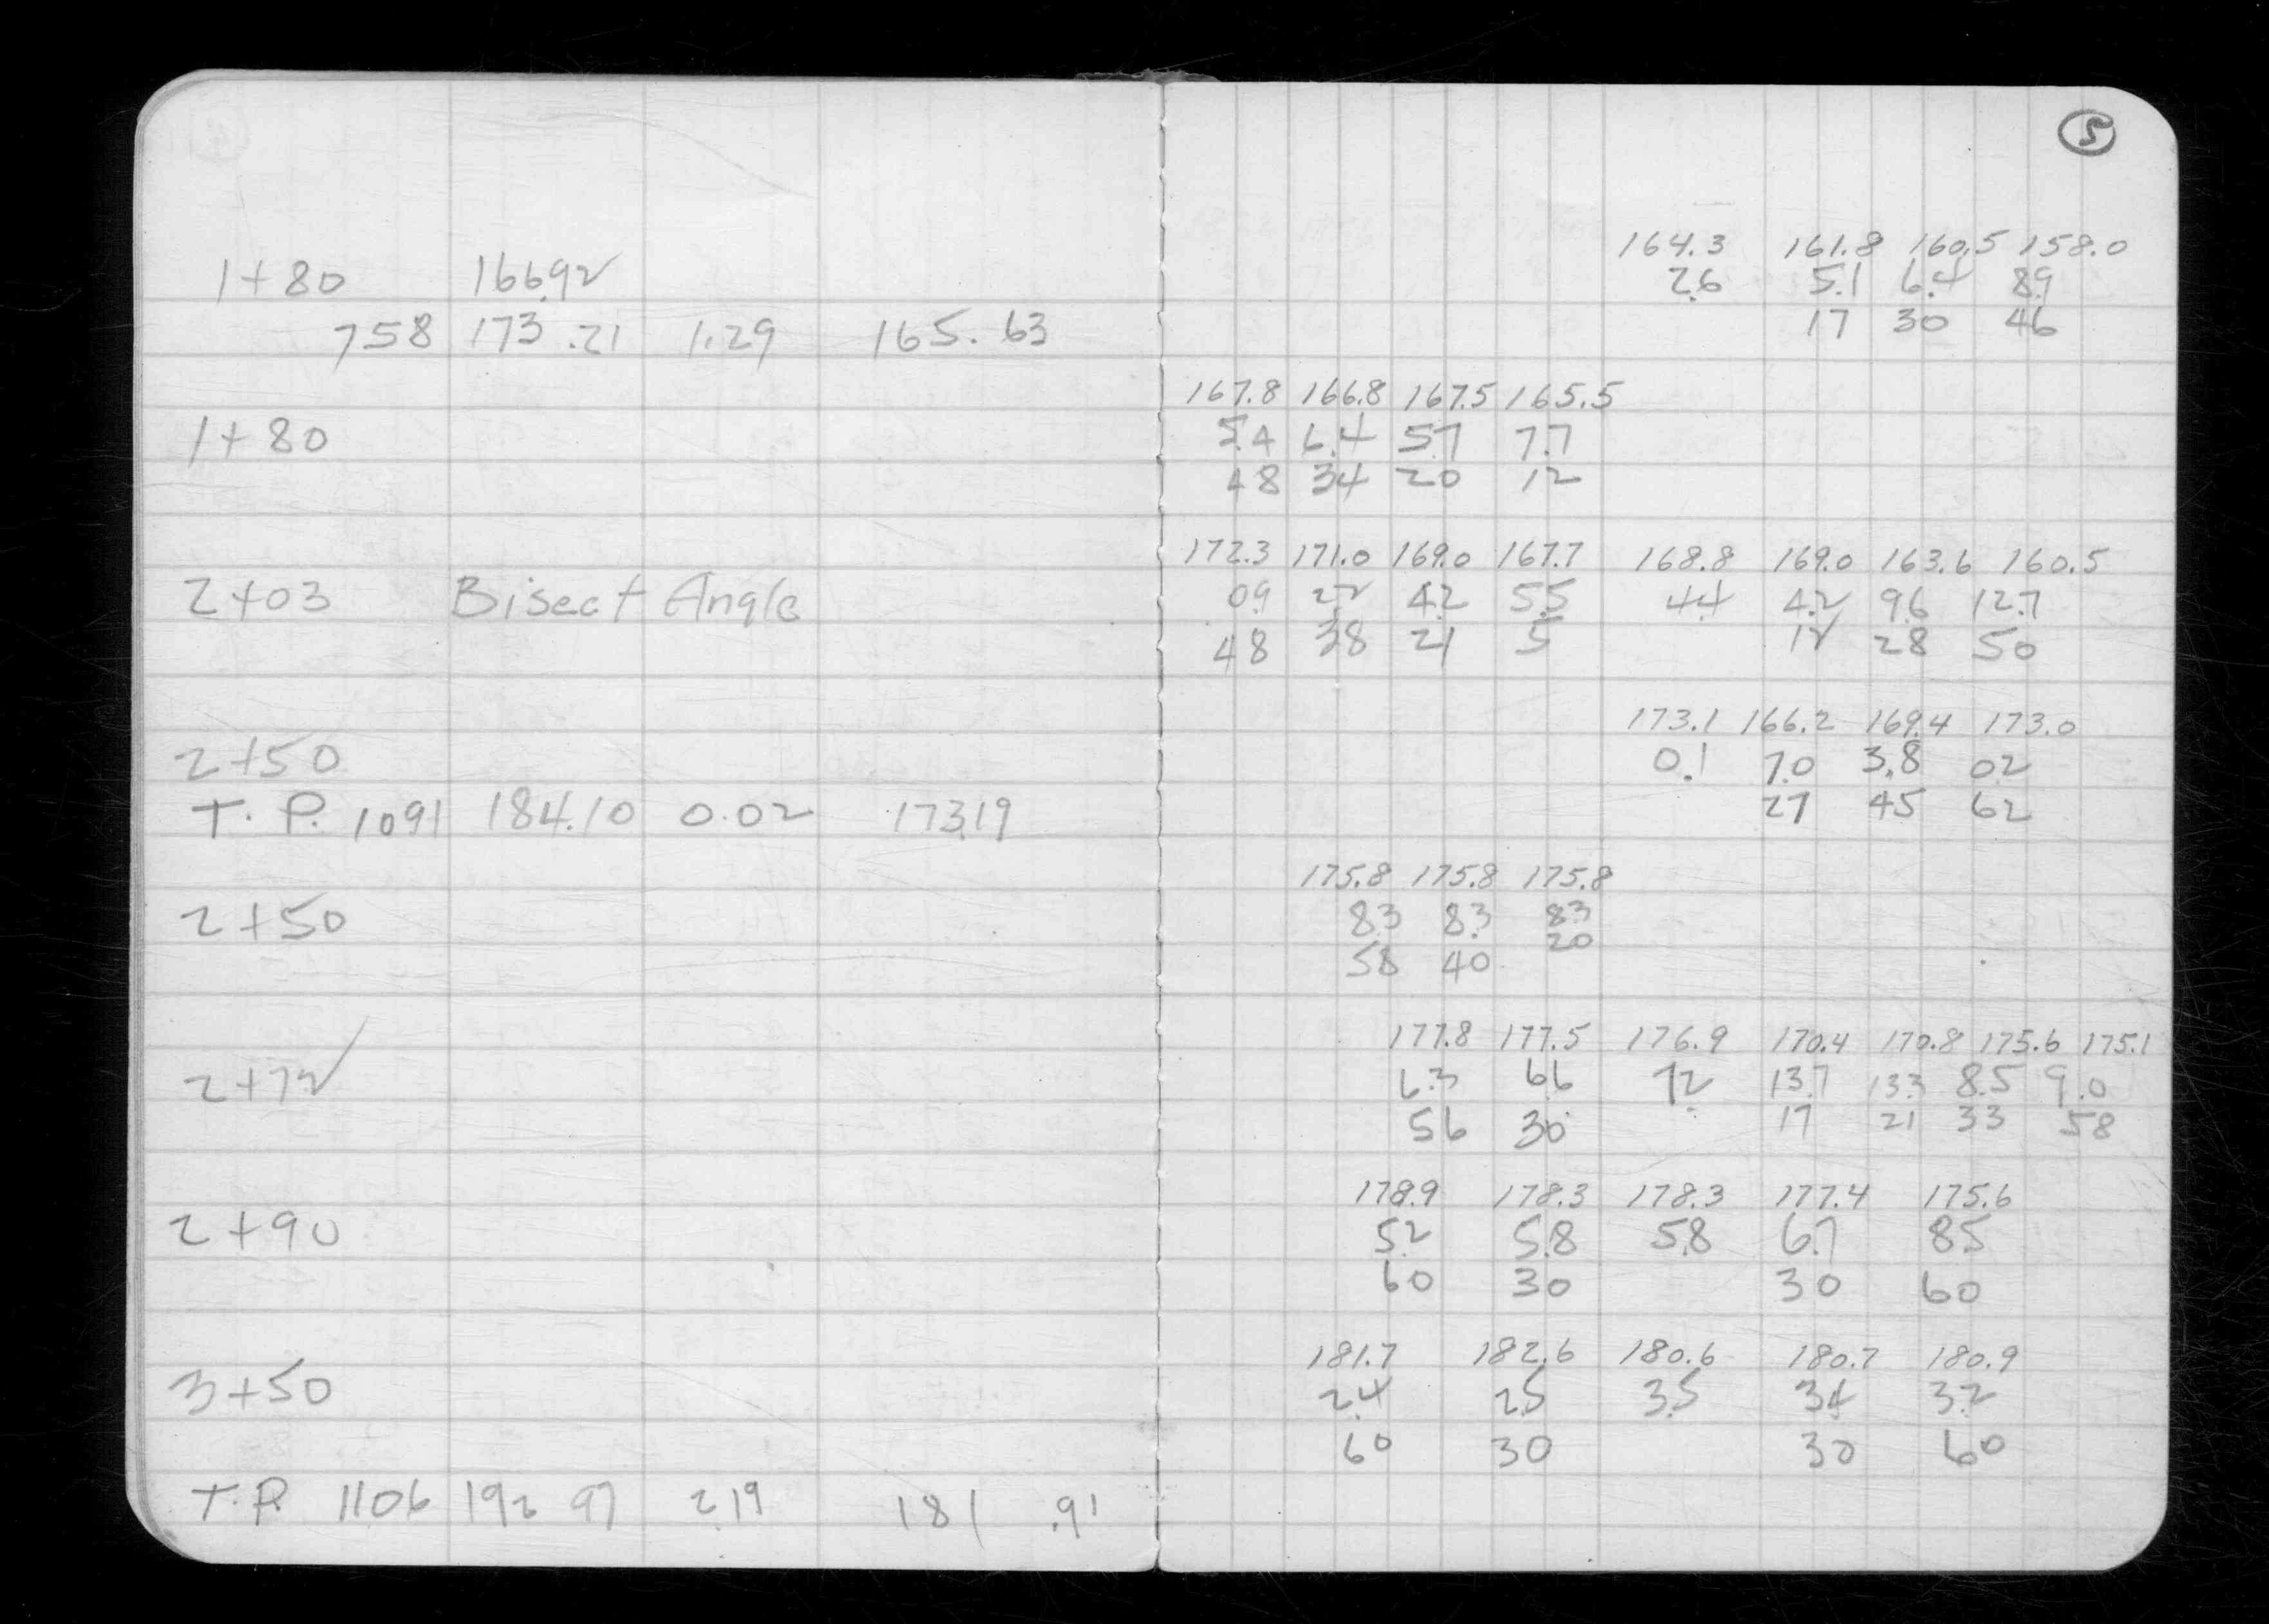 5
164.3 161.8 160.5 158.0
1+80 166.92 2.6 5.1 6.4 8.9
17 30 46
7.58 173.21 1.29 165.63
167.8 166.8 167.5 165.5
1+80 5.4 6.4 5.7 7.7
48 34 20 12
172.3 171.0 169.0 167.7 168.8 169.0 163.6 160.5
2+03 Bisect Angle 0.9 2.2 4.2 5.5 4.4 4.2 9.6 12.7
48 38 21 5 12 28 50
173.1 166.2 169.4 173.0
2+50 0.1 7.0 3.8 0.2
T.P. 1091 184.10 0.02 173.19 27 45 62
175.8 175.8 175.8
2+50 8.3 8.3 8.3
58 40 20
177.8 177.5 176.9 170.4 170.8 175.6 175.1
2+72 6.3 6.6 7.2 13.7 13.3 8.5 9.0
56 30 17 21 33 58
178.9 178.3 178.3 177.4 175.6
2+90 5.2 5.8 5.8 6.7 8.5
60 30 30 60
181.7 182.6 180.6 180.7 180.9
3+50 2.4 2.5 3.5 3.4 3.2
60 30 30 60
T.P. 1106 192 97 2.19 181.91